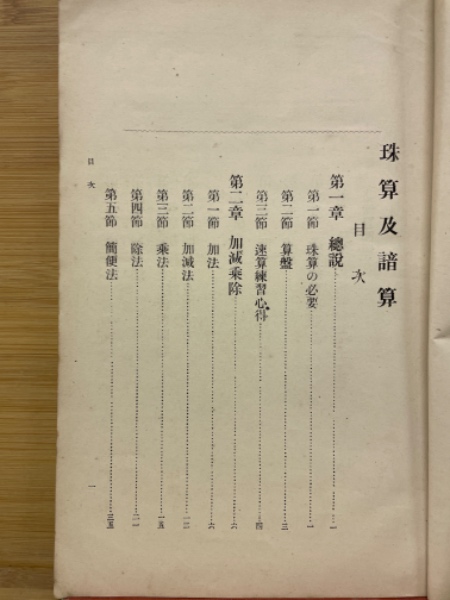 珠算及諳算
目次
第一章 總說……一
第一節 珠算の必要……一
第二節 算盤……三
第三節 速算練習心得……四
第二章 加減乘除……六
第一節 加法……六
第二節 加減法……一二
第三節 乘法……一五
第四節 除法……二一
第五節 簡便法……三五
目次
一